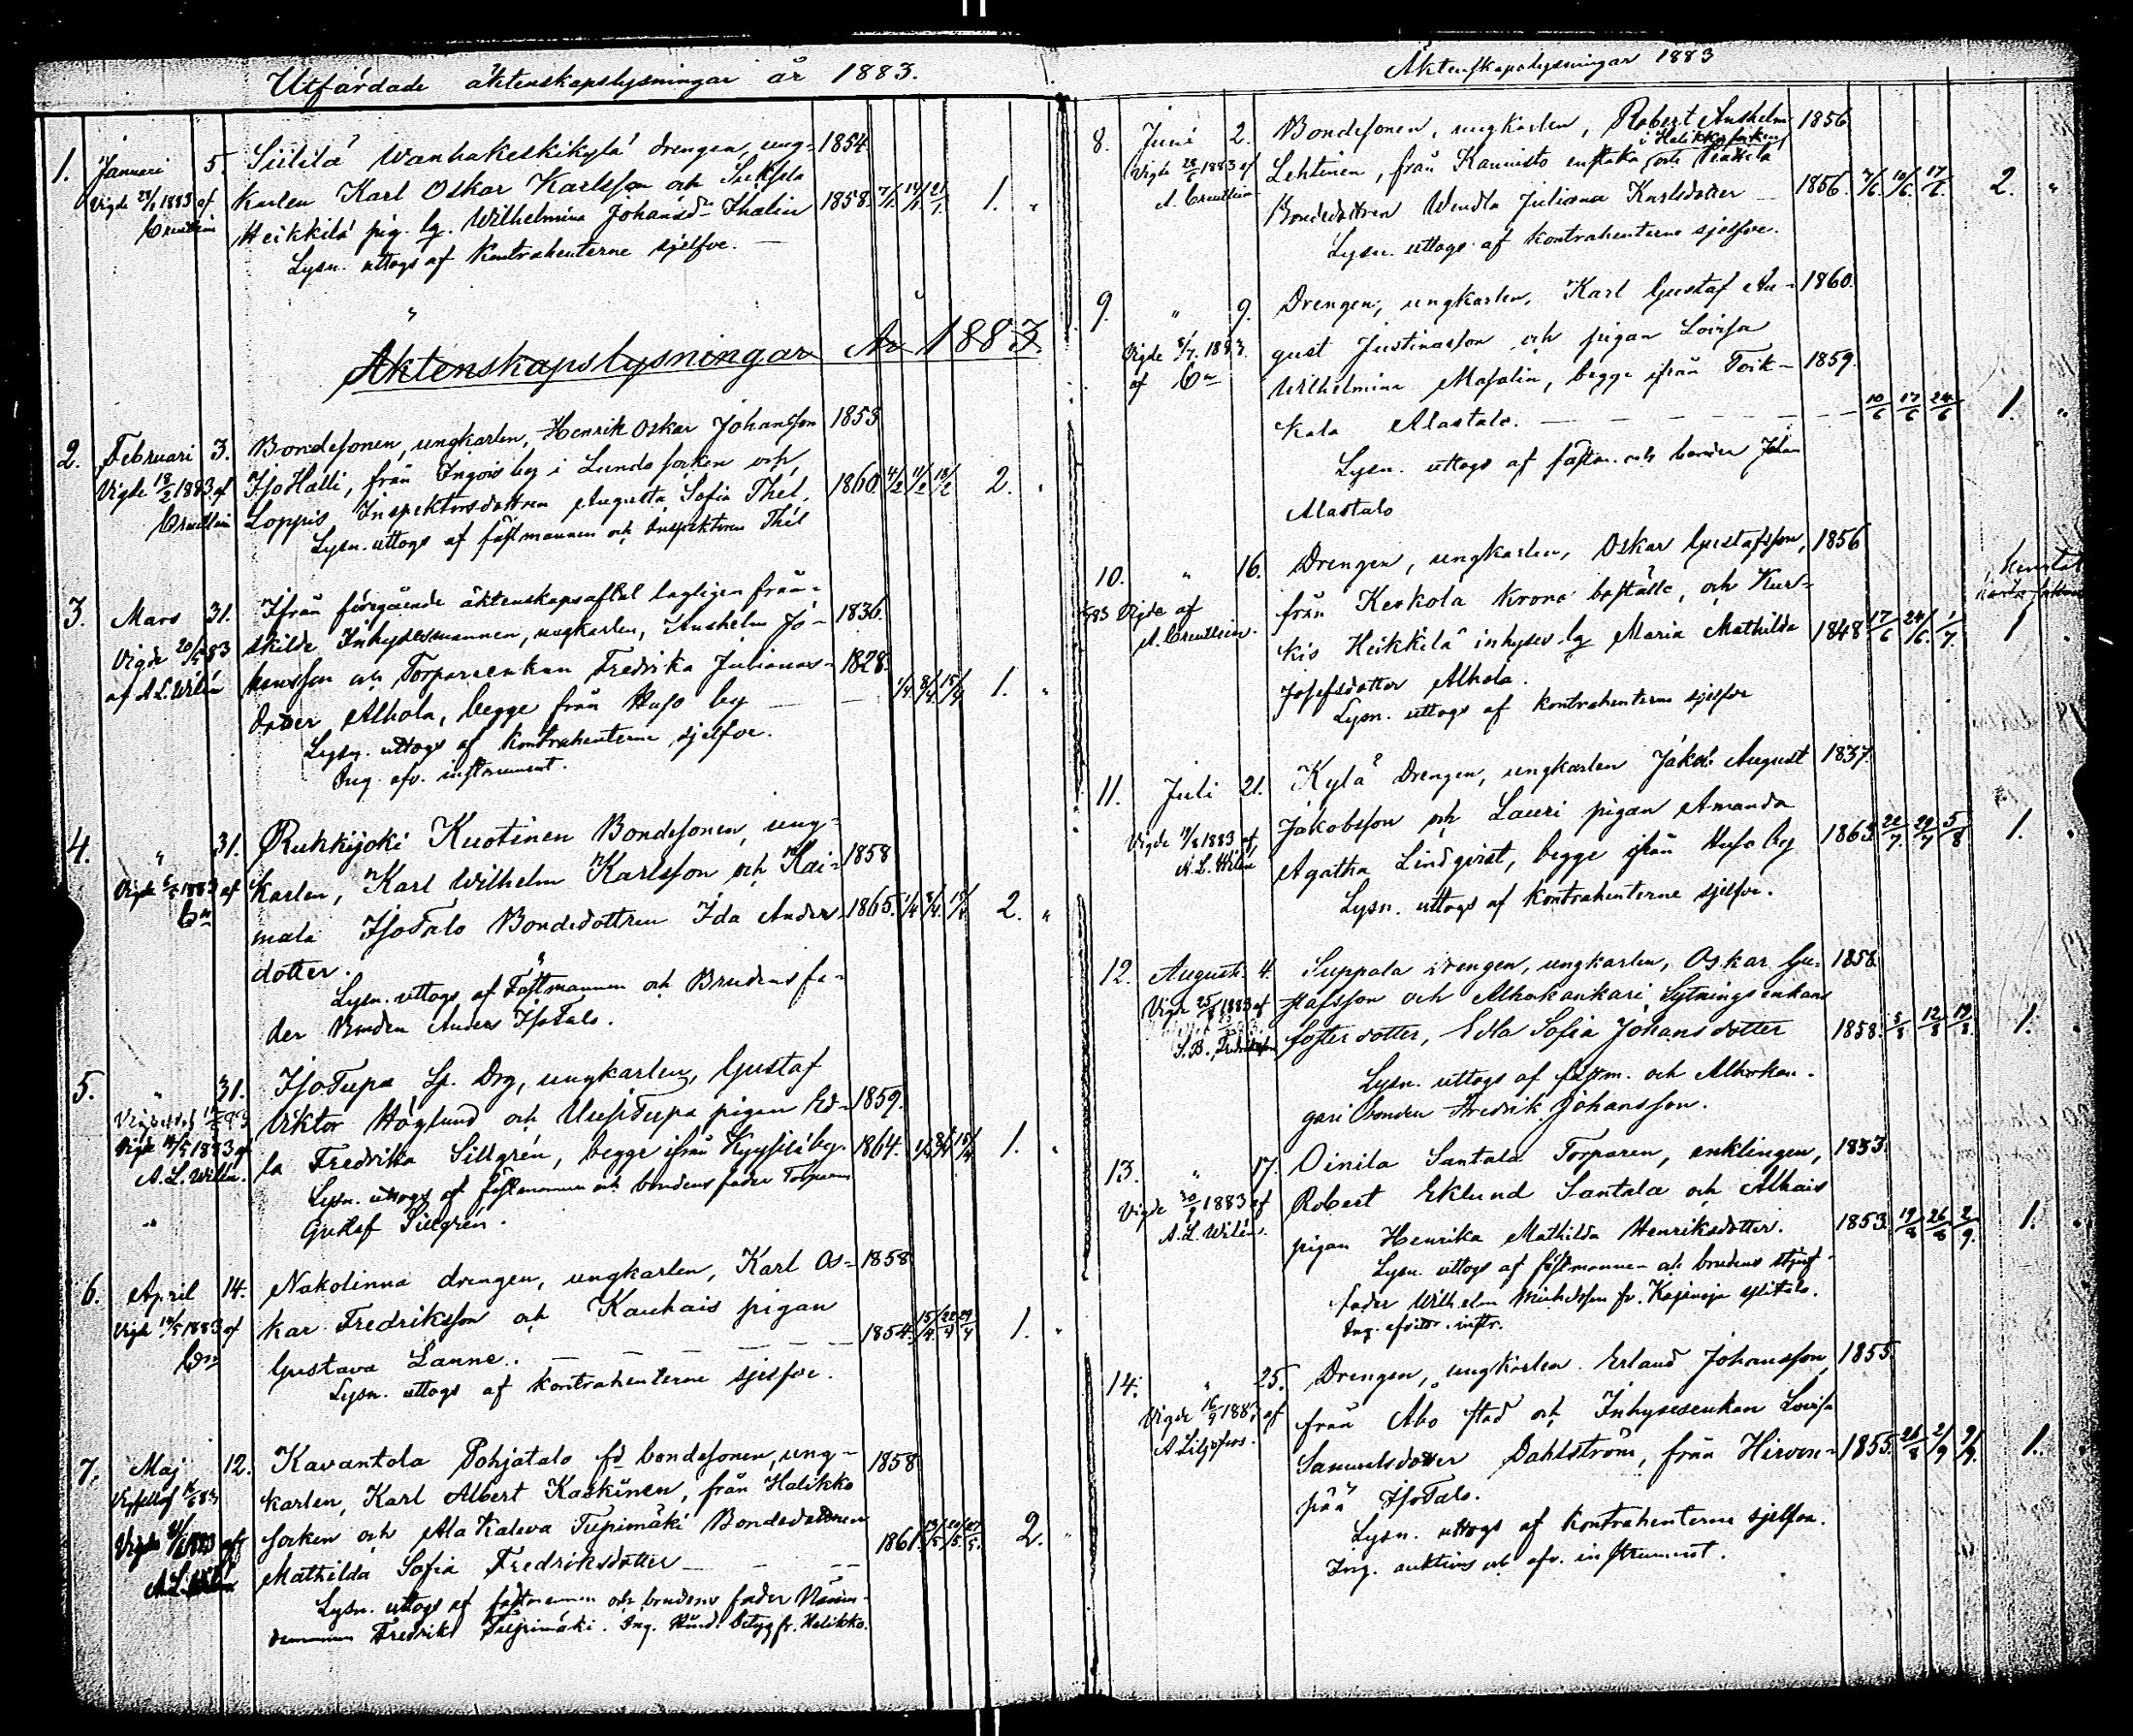 Utfärdade äktenskapslysningar år 1883.
1. Januari 5. Siililä Wanhakeskikylä drengen, ung- 1854.
Vigde 1883 af karlen Karl Oskar Karlsson och 1858. 7/1 14/1 21/1 1. "
Heikkilä pig. lg. Wilhelmina Johansd:r Thalin
Lysn. uttogs af Kontrahenterne sjelfve.
Äktenskapslysningar År 1883.
2. Februari 3. Bondesonen, ungkarlen, Henrik Oskar Johansson 1853
Vigde 18/2 1883 af IsoHalli, från Ingois by i Lundo socken och 1860 4/2 11/2 18/2 2. "
Loppis Inspektorsdottren Augusta Sofia Thél.
Lysn. uttogs af fästmannen och Inspektoren Thél
3. Mars 31. Ifrån föregående äktenskapsaftal lagligen från-
Vigde 20/5 83 skilde Inhysesmannen, ungkarlen, Anshelm Jo- 1836.
af A L. Wilén hansson och Torparenkan Fredrika Julianas- 1828.
dotter Alhola, begge från Huso by 1/4 8/4 15/4 1. "
Lysn. uttogs af kontrahenterne sjelfve.
Ing. afv. instrument.
4. " 31. Rukkijoki Kuotinen Bondesonen, ung-
Vigde 1883 af karlen, Karl Wilhelm Karlsson och Kai- 1858
mala IsoTalo Bondedottren Ida Anders- 1865. 1/4 8/4 15/4 2. "
dotter.
Lysn. uttogs af Fästmannen och Brudens fa-
der Bonden Anders IsoTalo.
5. " 31. IsoTupa Sp. Drg, ungkarlen, Gustaf
Viktor Höglund och UusiTupa pigan Ed- 1859.
Vigde 1883 af la Fredrika Sillgrén, begge ifrån by. 1864. 1/4 8/4 15/4 1. "
A. L. Wilén. Lysn. uttogs af fästmannen och brudens fader Torparen
Gustaf Sillgrén.
6. April 14. Nakolinna drengen, ungkarlen, Karl Os- 1858
Vigde 1883 af kar Fredriksson och Kauhais pigan
Gustava Lanne. 1854. 15/4 22/4 29/4 1. "
Lysn. uttogs af kontrahenterne sjelfve.
7. Maj 12. Kavantola Pohjatalo fd bondesonen, ung- 1858
karlen, Karl Albert Kaskinen, från Halikko
Vigde 1883 af socken och Ala Kaleva Tupimäki Bondedottren 1861. 13/5 20/5 27/5 2. "
Mathilda Sofia Fredriksdotter
Lysn. uttogs af fästmannen och brudens fader Nämn-
demannen Fredrik Tupimäki. Ing. betyg fr. Halikko.
Äktenskapslysningar 1883
8. Juni 2. Bondesonen, ungkarlen, Robert Anshelm 1856
i Halikko socken
Vigde 1883 af Lehtinen, från Kannisto enstaka och
A. Creutlein Bondedottren Wendla Juliana Karlsdotter 1856. 10/6. 17/6. 2. "
Lysn. uttogs af kontrahenterne sjelfve.
9. " 9. Drengen, ungkarlen, Karl Gustaf Au- 1860.
Vigde 8/7. 1883. gust Justinasson och pigan Lovisa
af Wilhelmina Masalin, begge ifrån Toik- 1859.
kala Alastalo. 10/6 17/6 24/6 1. "
Lysn. uttogs af fästm. och bonden Johan
Alastalo
10. " 16. Drengen, ungkarlen, Oskar Gustafsson, 1856
Vigde af från Keskola Krono boställe, och Kur-
A. Creutlein. kis Heikkilä inhyses lg Maria Mathilda 1848 17/6 24/6. 1/7. 1
Josefsdotter Alhola.
Lysn. uttogs af kontrahenterne sjelfve
11. Juli 21. Kylä Drengen, ungkarlen Jakob August 1837.
Vigde 19/8 1883 af Jakobsson och Lauri pigan Amanda
A. L. Wilén Agatha Lindqvist, begge ifrån Huso by 1863 22/7. 29/7 5/8 1. "
Lysn. uttogs af kontrahenterne sjelfve.
12. Augusti 4. Suppala drengen, ungkarlen, Oskar Gu- 1858
Vigde 25/8 1883 af stafsson och Alhokankari Sytningsenkans
fosterdotter, Edla Sofia Johansdotter 1858. 5/8 12/8 19/8. 1. "
Lysn. uttogs af fästm. och Alhokan-
gari bonden Fredrik Johansson.
13. " 17. Oinila Santala Torparen, enklingen, 1833.
Vigde 1883 af Robert Eklund Santala och Alhais
A. L. Wilén. pigan Henrika Mathilda Henriksdotter. 1853. 19/8 26/8 2/9. 1. "
Lysn. uttogs af fästmannen och brudens styf-
fader Wilhelm Michelsson fr. Kajamoja
Ing. instr.
14. " 25. Drengen, ungkarlen Erland Johansson, 1855.
Vigde 16/9 1883 af från Åbo stad och Inhysesenkan Lovisa
A Liljefors. Samuelsdotter Dahlström, från Hirven- 1855. 26/8 2/9 9/9. 1. "
pää IsoTalo.
Lysn. uttogs af kontrahenterne sjelfva.
Ing. auktions och afv. instrument.